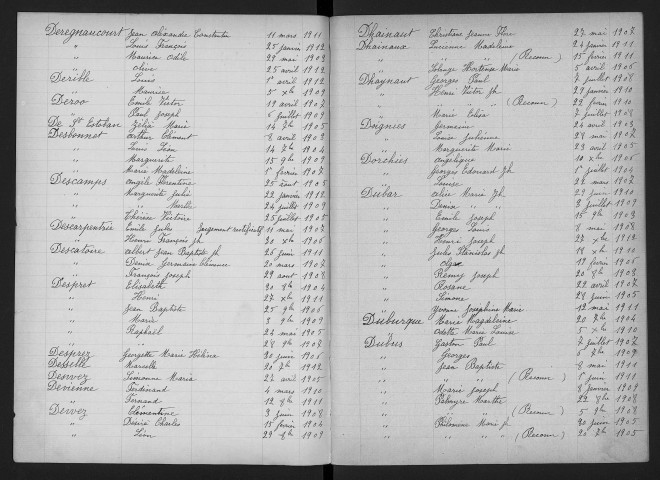 Deregnaucourt Jean Alexandre Constantin 11 mars 1911
" Louis François 25 janvier 1912
" Maurice Odile 29 mai 1902
" Olive 25 avril 1912
Derible Louis 1er avril 1912
" Maurice 5 xbre 1909
Deroo Emile Victor 19 avril 1907
" Paul Joseph 6 juillet 1909
De St Estoban Zélia Marie 14 7bre 1905
Desbonnet Arthur Clément 8 avril 1909
" Louis Léon 14 7bre 1904
" Marguerite 15 9bre 1909
" Marie Madeleine 1er février 1907
Descamps Angèle Florentine 25 août 1905
" Marguerite Julie 22 janvier 1912
" " Marthe 24 juillet 1909
" Thérèse Victoire 25 juillet 1905
Descarpentrie Emile Jules Jugement rectificatif 11 mai 1907
" Henri François Jh 20 xbre 1906
Descatoire Albert Jean Baptiste Jh 26 juin 1911
" Denise Germaine Clémence 20 mars 1907
" François Joseph 29 août 1908
Despret Elisabeth 30 8bre 1904
" Henri 27 xbre 1911
" Jean Baptiste 25 9bre 1906
" Marie 3 9bre 1909
" Raphaël 24 mai 1905
" " 28 9bre 1907
Desprez Georgette Marie Hélène 20 juin 1906
Desselle Marcelle 20 7bre 1912
Desvez Simonne Maria 27 avril 1905
Devienne Ferdinand 4 mars 1910
" Fernand 12 8bre 1911
Devez Clémentine 3 juin 1908
" Désiré Charles 15 février 1904
" Léon 29 8bre 1909
Dhainaut Christiane Jeanne Flore 27 mai 1907
Dhainaux Lucienne Madeleine 24 janvier 1911
" " " (Reconn) 15 février 1911
" Solange Hortense Marie 5 avril 1906
Dhaynaut Georges Paul 7 juillet 1908
" Henri Victor Jh 29 janvier 1910
" " " " (Reconn) 22 février 1910
" Marie Elisa 7 juillet 1908
Doignies Germain 24 avril 1905
" Louise Julienne 28 mai 1907
" Marguerite Marie 23 avril 1905
Dorchies Angélique 10 xbre 1906
" Georges Edouard Jh 1er juillet 1904
" Louise 22 mars 1907
Dubar Alice Marie Jh 29 juin 1910
" Denise " 3 juillet 1909
" Emile Joseph 15 9bre 1903
" Georges Louis 8 mai 1908
" Henri Joseph 27 xbre 1912
" Jules Stanislas Jh 18 xbre 1911
" Olga 19 février 1906
" Rémy Joseph 20 8bre 1908
" Rosane 22 avril 1907
" Simone 28 juin 1905
" Yvonne Joséphine Marie 12 mai 1911
Duburque Marie Magdeleine 20 7bre 1904
" Odette Marie Louise 5 xbre 1910
Dubus Gaston Paul 7 juillet 1907
" Georges 6 7bre 1909
" Jean Baptiste 8 mai 1911
" " " (Reconn) 1er juin 1911
" Marie Joseph 8 janvier 1909
" Marthe 22 8bre 1908
" " (Reconn) 5 9bre 1908
" Philomène Marie Jh 30 juin 1905
" " " " (Reconn) 20 7bre 1905